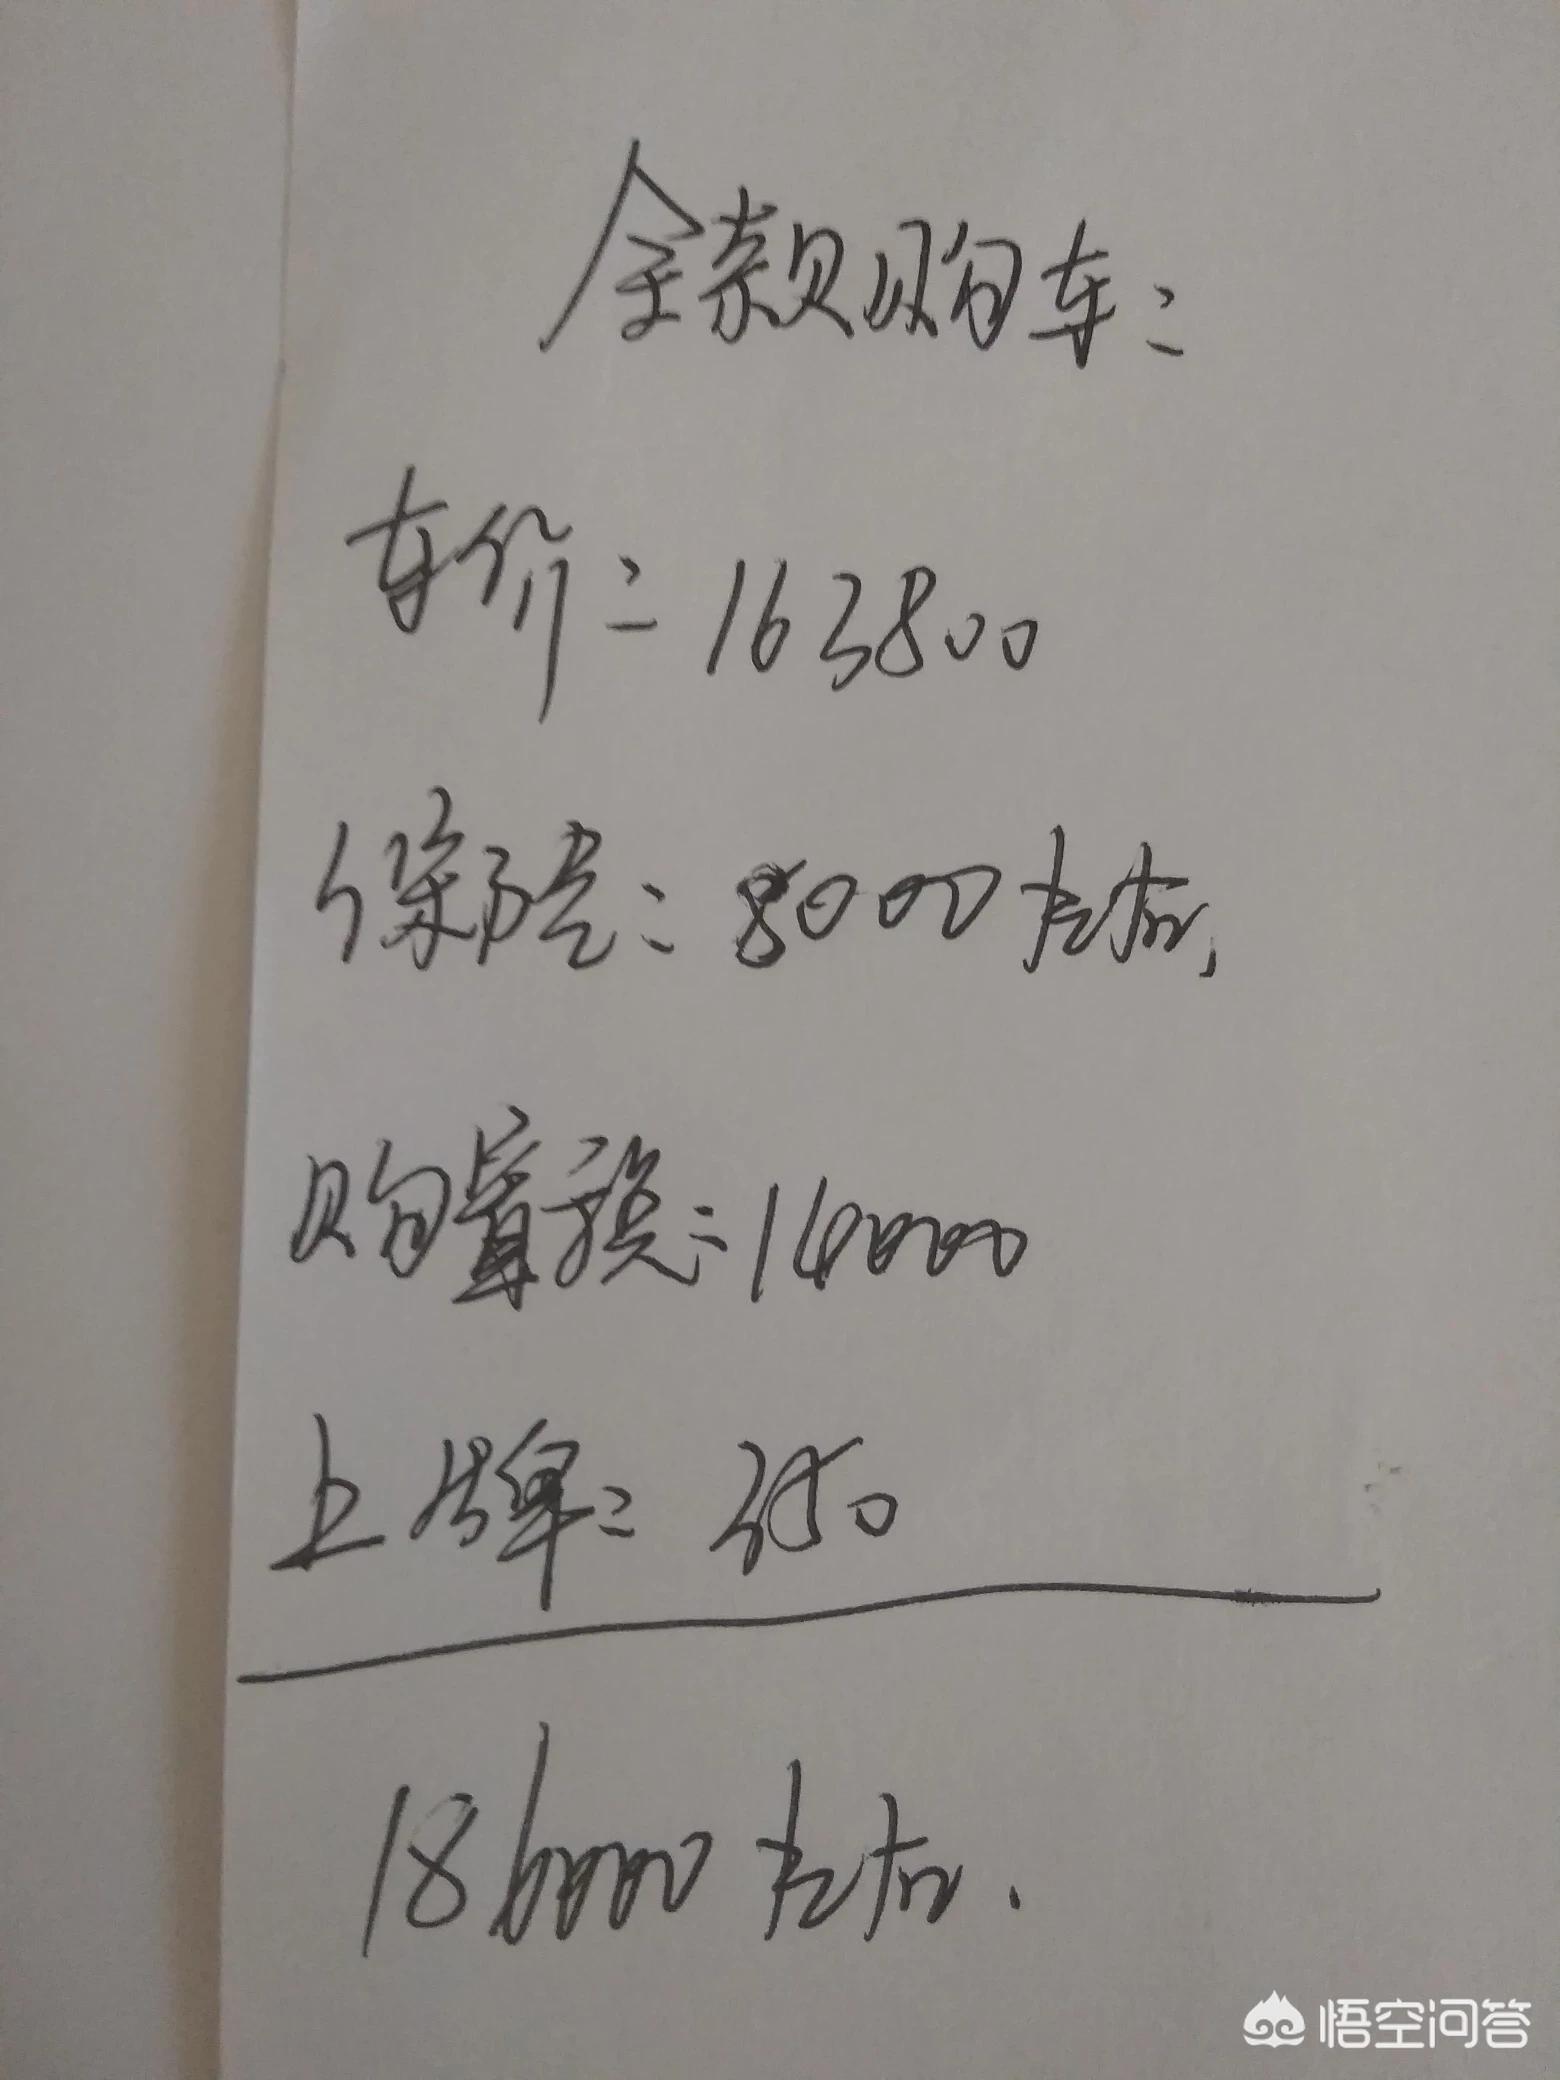 全款购车：
车价：163800
保险：8000左右，
购置税：14000
上牌：350
186000左右.
悟空问答